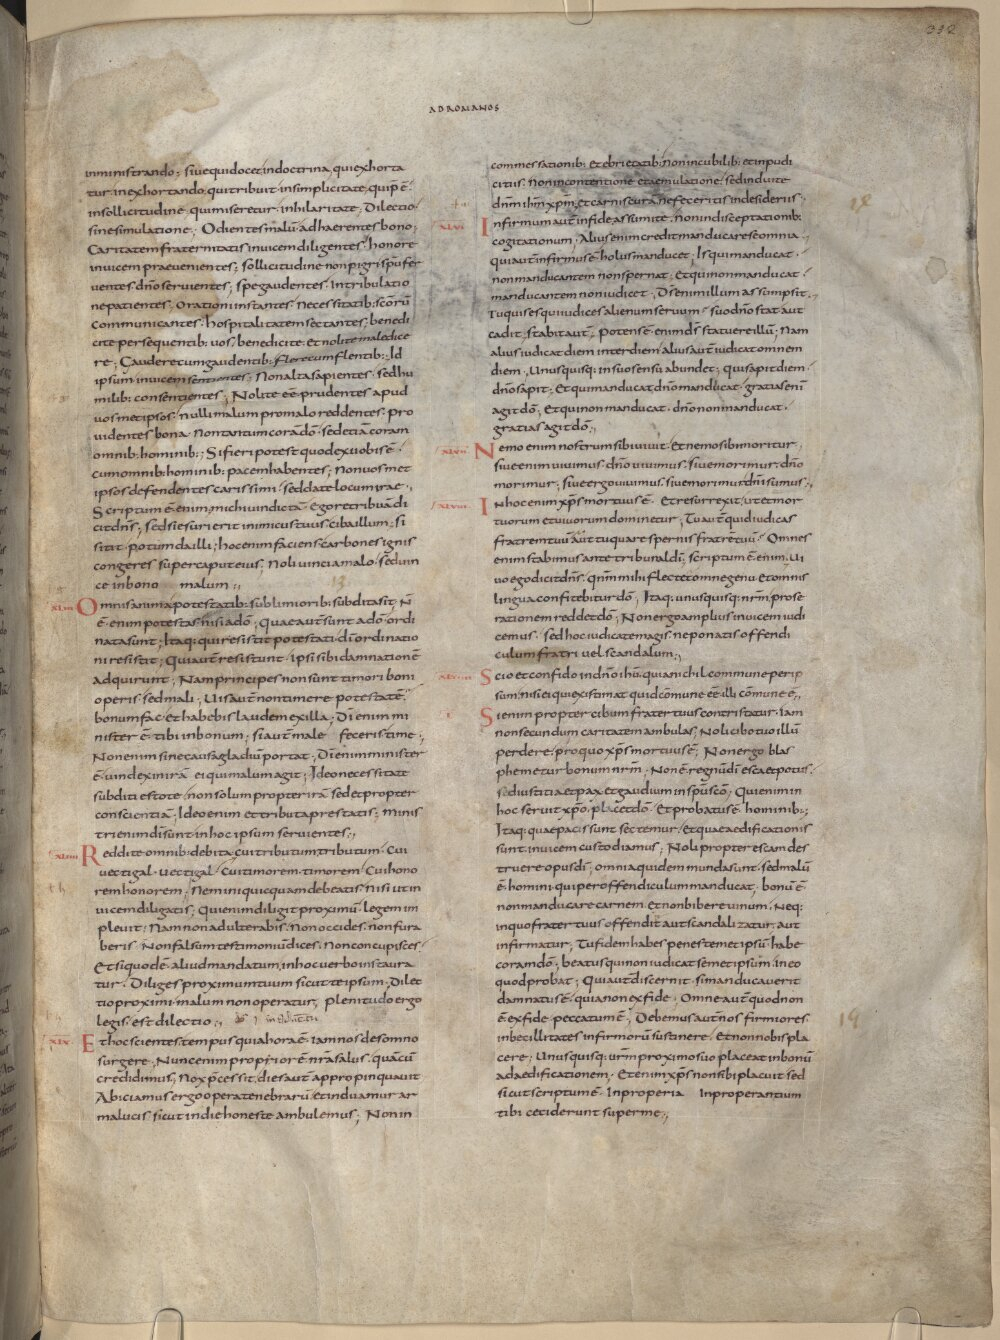 332
AD ROMANOS
in ministrando ; siue qui docet in doctrina, qui exhorta
tur in exhortando. qui tribuit in simplicitate, qui p̄ ē.
in sollicitudine. qui miseretur. in hilaritate ; Dilectio
sine simulatione ; Odientes malū. adhaerentes bono ;
Caritatem fraternitatis inuicem diligentes. honore
inuicem praeuenientes ; sollicitudine non pigri. spū fer
uentes. dn̄o seruientes ; spe gaudentes. In tribulatio
ne patientes. Orationi instantes. Necessitatib; sc̄orū
communicantes. hospitalitatem sectantes. benedi
cite persequentib; uos. benedicite et nolite maledice
re ; Gaudere cum gaudentib; flere cum flentib; Id
ipsum inuicem sentientes ; Non alta sapientes. sed hu
milib; consentientes ; Nolite ēē prudentes apud
uosmetipsos. nulli malum pro malo reddentes. pro
uidentes bona. Non tantum corā dō. sed etiā coram
omnib; hominib; ; Si fieri potest quod ex uobis ē.
cum omnib; hominib; pacem habentes ; Non uosmet
ipsos defendentes carissimi. sed date locum irae.,
Scriptum ē enim ; michi uindictā. Ego retribuā di
cit dn̄s ; sed si esurierit inimicus tuus. ciba illum ; si
sitit. potum da illi ; hoc enim faciens. carbones ignis
congeres super caput eius ; Noli uinci a malo. sed uin
ce in bono malum ;
xlııı Omnis anima potestatib; sublimiorib; subdita sit. N̄
ē. enim potestas nisi a dō ; Quae aut̄ sunt a dō. ordi
nata sunt ; Itaq; qui resistit potestati. dī ordinatio
ni resistit ; Qui aut̄ resistunt. ipsi sibi damnationē
adquirunt ; Nam principes non sunt timori boni
operis. sed mali ; Uis aut̄ non timere potestatē
bonum fac. et habebis laudem ex illa ; Dī enim mi
nister ē. tibi in bonum ; si aut̄ male feceris time ;
Non enim sine causa gladiū portat ; Dī enim minister
ē. uindex in irā ei qui malum agit ; Ideo necessitate
subditi estote. non solum propter irā. sed et propter
conscientiā ; Ideo enim et tributa prestatis ; Minis
tri enim dī sunt in hoc ipsum seruientes ;
xlıııı Reddite omnib; debita. cui tributum tributum. Cui
uectigal. uectigal. Cui timorem. timorem. Cui hono
rem honorem ; Nemini quicquam debeatis. Nisi ut in
uicem diligatis ; Qui enim diligit proximū. legem im
pleuit ; Nam non adulterabis. Non occides. non fura
beris. Non falsum testimoniū dices. Non concupisces.
Et si quod ē. aliud mandatum. in hoc uerbo instaura
tur. Diliges proximum tuum sicut te ipsum ; Dilec
tio proximi. malum non operatur ; plenitudo ergo
legis est dilectio ;
xlv Et hoc scientes tempus quia hora ē. iam nos de somno
surgere ; Nunc enim proprior ē nr̄a salus. quā cū
credidimus ; Nox p̄cessit, dies aut̄ appropinquauit
Abiciamus ergo opera tenebrarū. et induamur ar
ma lucis. sicut in die honeste ambulemus ; Non in
commessationib; et ebrietatib; non in cubilib; et inpudi
citiis. Non in contentione et aemulatione. sed induite
dn̄m ih̄m xp̄m. et carnis curā ne feceritis in desideriis.
18
xlvı Infirmum aut̄ in fide assumite. non in disceptationib;
cogitationum ; Alius enim credit manducare se omnia.
qui aut̄ infirmus ē. holus manducet ; Is qui manducat.
non manducantem non spernat ; Et qui non manducat.
manducantem non iudicet ; Ds̄ enim illum assumpsit ;
Tu quis es qui iudices alienum seruum. suo dn̄o stat aut
cadit. stabit aut̄. Potens ē enim ds̄ statuere illū ; Nam
alius iudicat diem inter diem. alius aut̄ iudicat omnem
diem. Unusquisq; in suo sensu abundet ; qui sapit diem.
dn̄o sapit ; Et qui manducat. dn̄o manducat. gratias eni
agit dō ; Et qui non manducat. dn̄o non manducat.
gratias agit dō ;
xlvıı Nemo enim nostrum sibi uiuit. Et nemo sibi moritur ;
siue enim uiuimus. dn̄o uiuimus. siue morimur. dn̄o
morimur ; siue ergo uiuimus siue morimur dn̄i sumus ;
xlvııı In hoc enim xp̄s mortuus ē. Et resurrexit, ut et mor
tuorum et uiuorum dominetur ; Tu aut̄ quid iudicas
fratrem tuū. Aut tu quare spernis fratrē tuū. Omnes
enim stabimus ante tribunal dī ; scriptum ē. enim. Ui
uo ego dicit dn̄s. Qn̄m mihi flectet omne genu. Et omnis
lingua confitebitur dō ; Itaq; unusquisq; nr̄m pro se
rationem reddet dō ; Non ergo amplius inuicem iudi
cemus. sed hoc iudicate magis. ne ponatis offendi
culum fratri uel scandalum ;
xlvıııı Scio et confido in dn̄o ih̄u. quia nichil commune per ip
sum. nisi ei qui existimat quid cōmune ēē. illi cōmune ē ;
l Si enim propter cibum frater tuus contristatur. iam
non secundum caritatem ambulas ; Noli cibo tuo illū
perdere. pro quo xp̄s mortuus ē ; Non ergo blas
phemetur bonum nr̄m ; Non ē. regnū dī esca et potus.
sed iustitia et pax et gaudium in sp̄u sc̄o ; Qui enim in
hoc seruit xp̄o. placet dō. Et probatus ē. hominib; ;
Itaq; quae pacis sunt sectemur. Et quae aedificationis
sunt. inuicem custodiamus ; Noli propter escam des
truere opus dī ; omnia quidem munda sunt. sed malū
ē. homini. qui per offendiculum manducat. bonū ē
non manducare carnem. Et non bibere uinum. Neq;
in quo frater tuus offendit aut scandalizatur. aut
infirmatur ; Tu fidem habes penes temetipsū. habe
coram dō ; beatus qui non iudicat semetipsum in eo
quod probat ; Qui aut̄ discernit. si manducauerit
damnatus ē. quia non ex fide. Omne aut̄ quod non
ē ex fide. peccatum ē ; Debemus aut̄ nos firmiores
19
inbecillitates infirmorū sustinere. Et non nobis pla
cere ; Unusquisq; ur̄m proximo suo placeat in bonū
ad aedificationem. Etenim xp̄s non sibi placuit sed
sicut scriptum ē. Inproperia Inproperantium
tibi ceciderunt super me ;